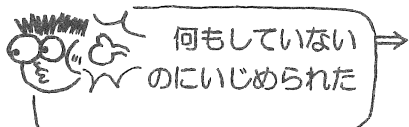 何もしていない
のにいじめられた